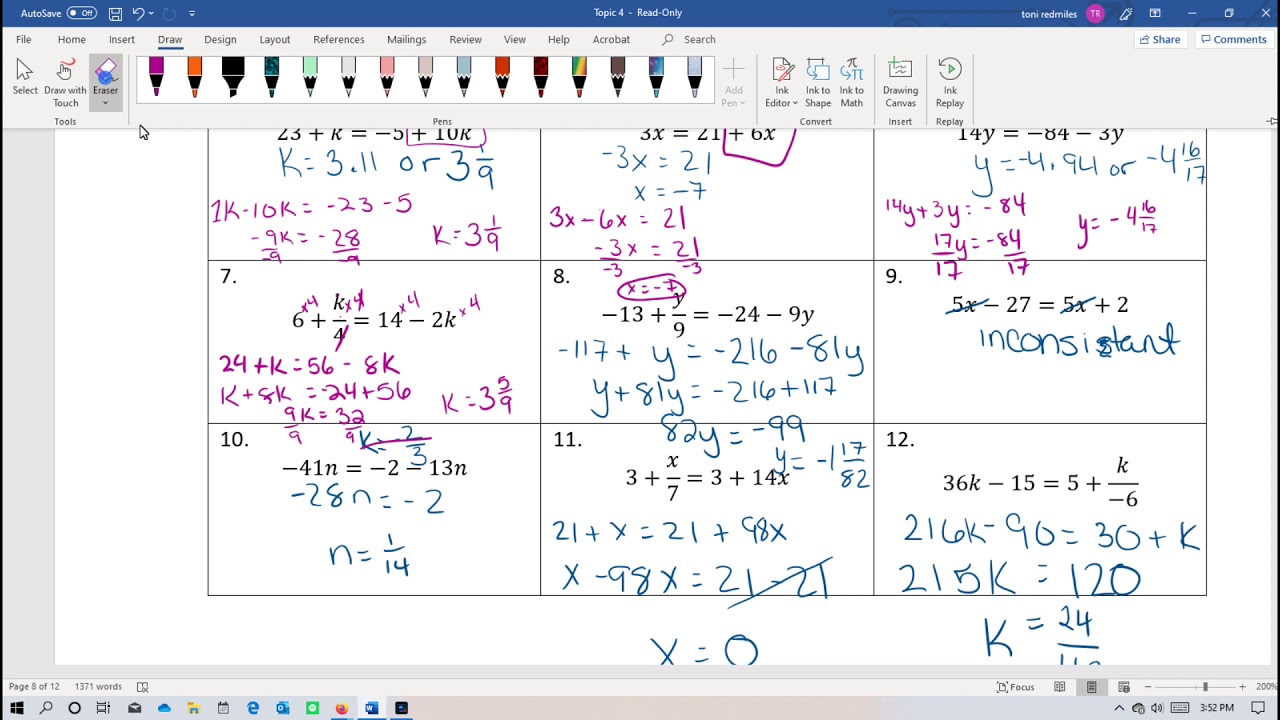 AutoSave Off
Topic 4 - Read-Only
toni redmiles TR
File Home Insert Draw Design Layout References Mailings Review View Help Acrobat Search Share Comments
Select
Draw with Touch
Eraser
Add Pen
Ink Editor
Ink to Shape
Ink to Math
Drawing Canvas
Ink Replay
Tools Pens Convert Insert Replay
23 + k = −5 + 10k
K = 3.11 or 3 1/9
1K - 10K = -23 - 5
-9K = -28
-9 -9
K = 3 1/9
3x = 21 + 6x
-3x = 21
x = -7
3x - 6x = 21
-3x = 21
-3 -3
x = -7
14y = −84 − 3y
y = -4.94 or -4 16/17
14y + 3y = -84
17y = -84
17 17
y = -4 16/17
7.
6 + k/4 = 14 − 2k
x4 x4 x4 x4
24 + K = 56 - 8K
K + 8K = -24 + 56
9K = 32
9 9
K = 3 5/9
K = 2/3
8.
−13 + y/9 = −24 − 9y
-117 + y = -216 - 81y
y + 81y = -216 + 117
82y = -99
y = -1 17/82
9.
5x − 27 = 5x + 2
inconsistant
10.
−41n = −2 − 13n
-28n = -2
n = 1/14
11.
3 + x/7 = 3 + 14x
21 + x = 21 + 98x
x - 98x = 21 - 21
x = 0
12.
36k − 15 = 5 + k/−6
216K - 90 = 30 + K
215K = 120
K = 24
Page 8 of 12 1371 words Focus 200%
3:52 PM